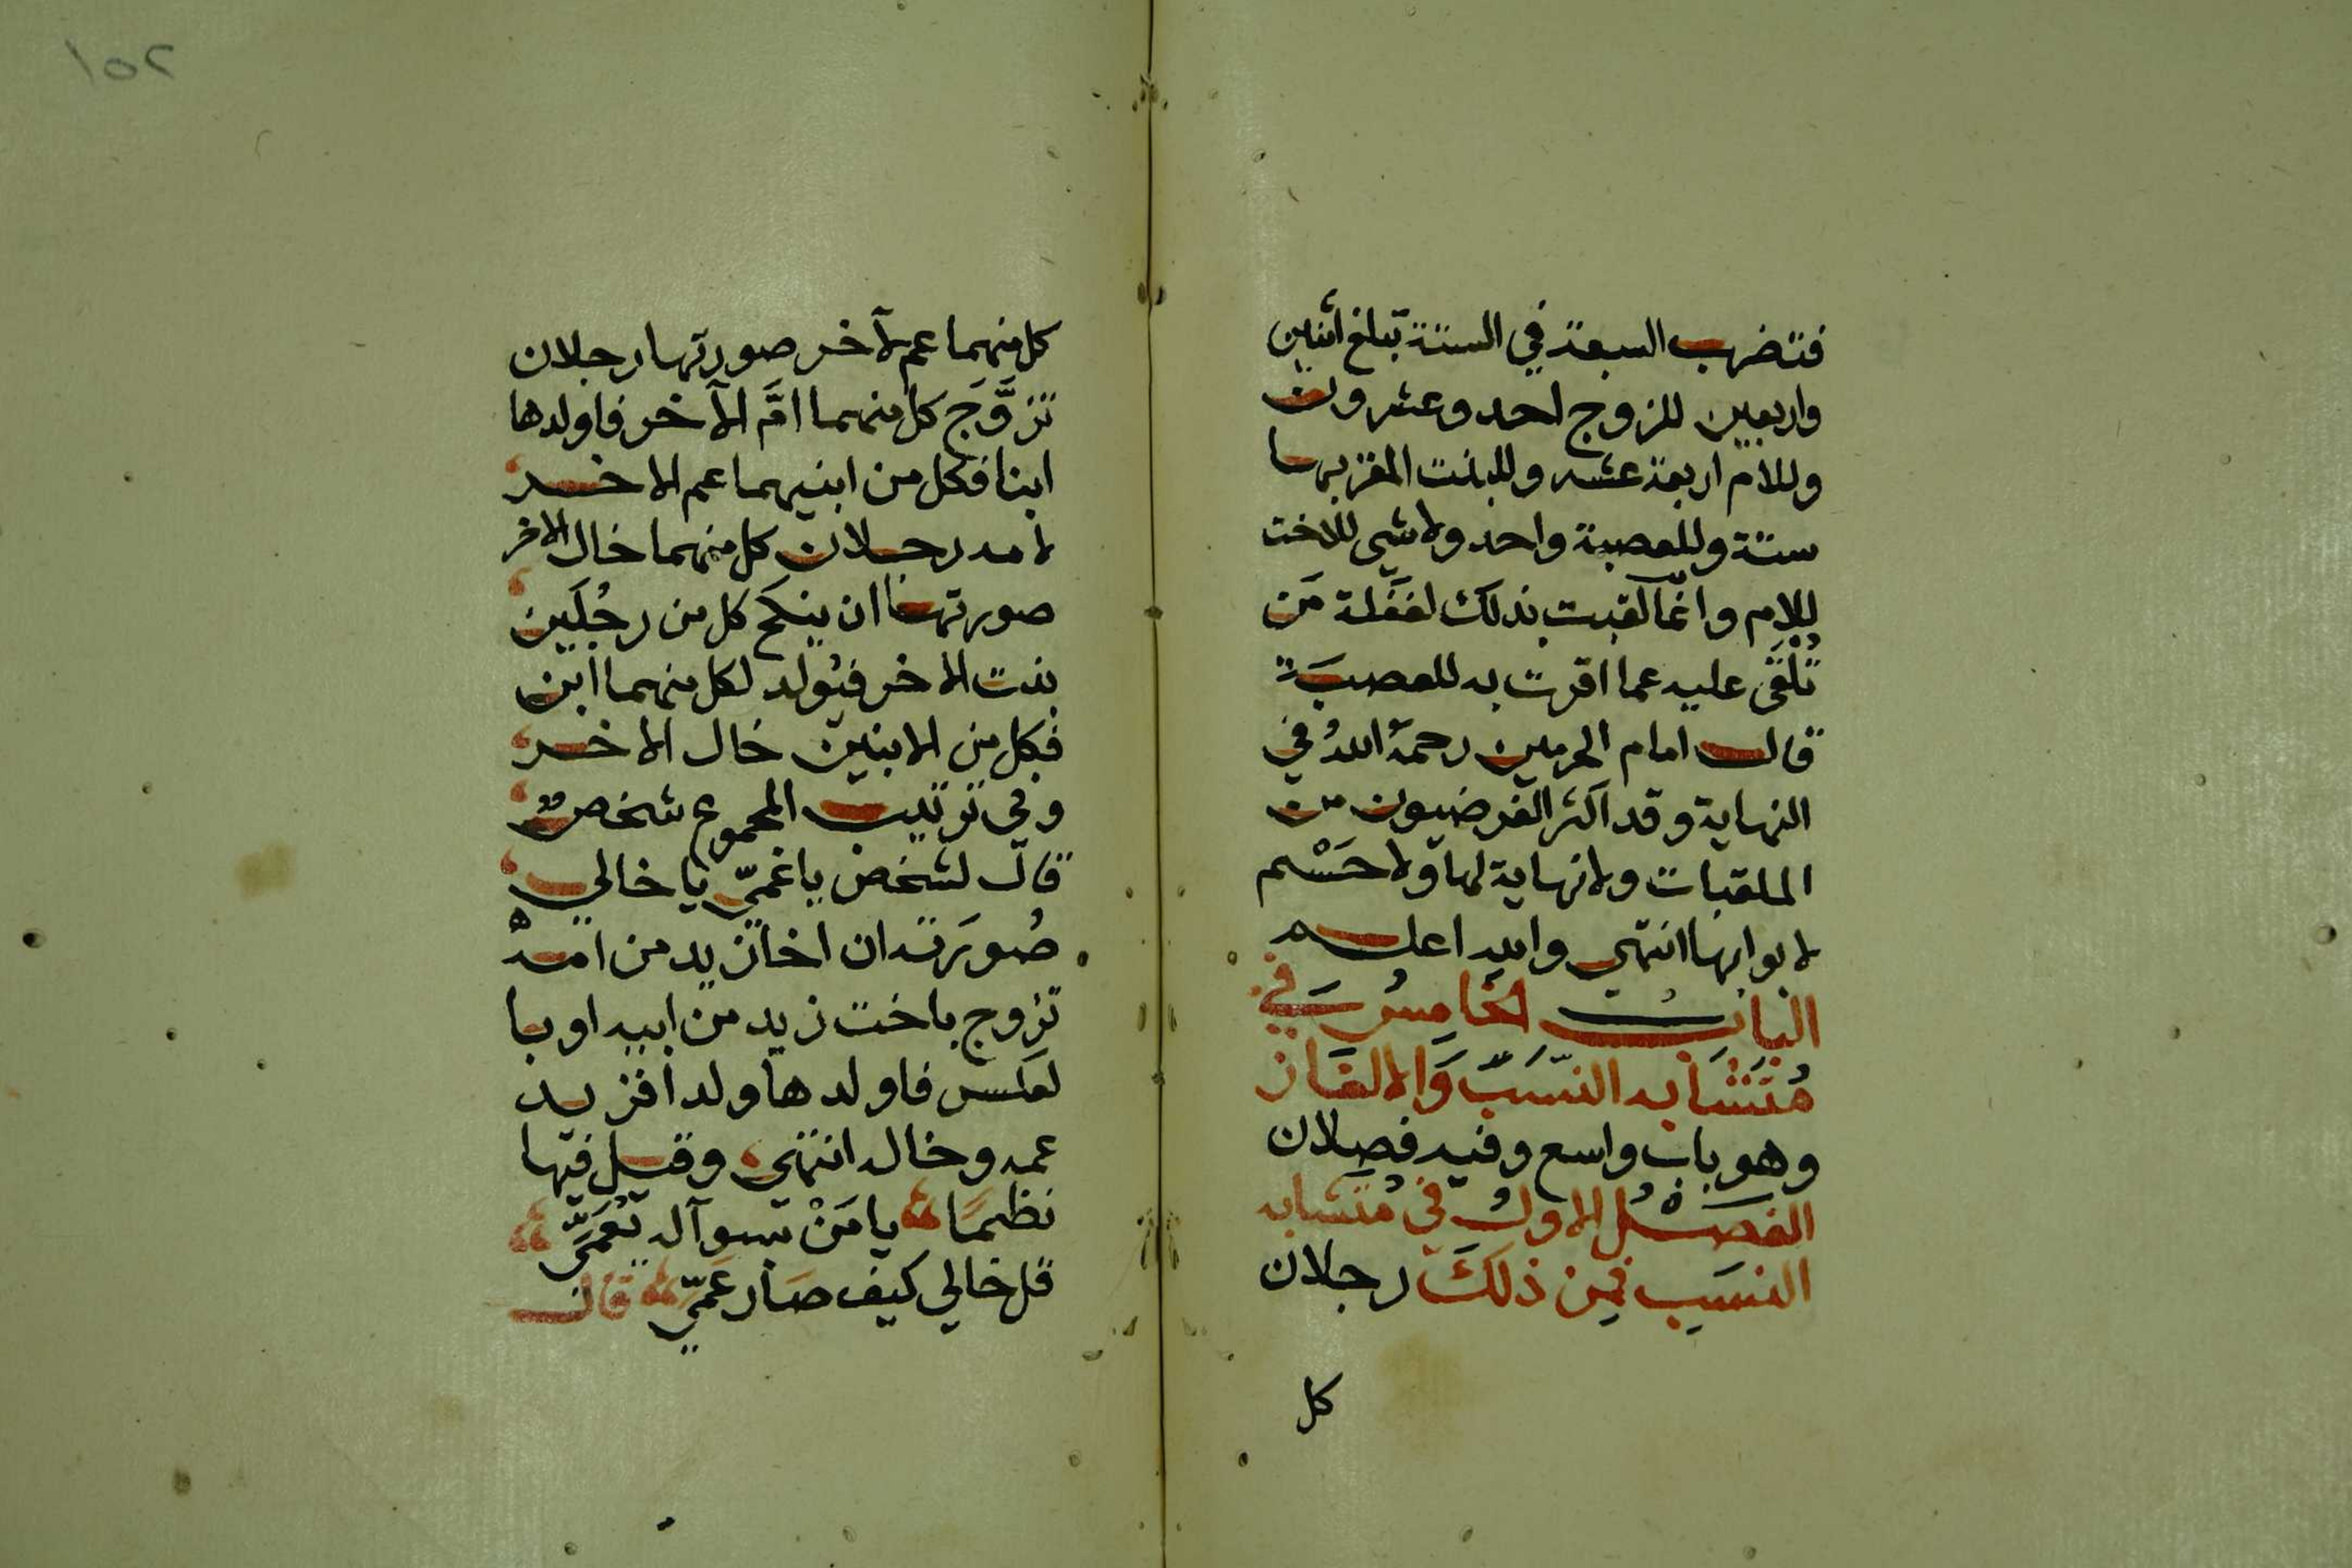 فتضرب السبعة في الستة تبلغ أثنين
واربعين للزوج احد وعشرون
وللام اربعة عشر وللبنت المقر بها
ستة وللعصبة واحد ولا شي للاخت
للام وانما لقبت بذلك لغفلة من
تُلْقَى عليه عما اقرت به للعصبَة
قال امام الحرمين رحمهُ اللهُ في
النهاية وقد اكثر الفرضيون من
الملقبات ولا نهاية لها ولا حَسْم
لابوابها انتهى والله اعلم
البابُ الخَامِسُ في
مُتَشَابه النّسَبِ وَالالغَاز
وهو باب واسع وفيه فصلان
الفَصْلُ الاولُ في مُتشَابه
النسَبِ فمِن ذلكَ رجلان
كل
١٥٢
كل منهما عم لآخر صورتها رجلان
تزَوَّجَ كل منهما امَّ الآخر فاولدها
ابنا فكل من ابنيهما عم الاخر
لامه رجلان كل منهما خال الاخر
صورتها ان ينكح كل من رجُلَين
بنت الاخر فيُولد لكل منهما ابن
فكل من الابنين خال الاخر
وفي ترتيب المجموع شخص
قال لشخص يا عمّي يا خالي
صُورَته ان اخا زيد من امه
تزوج باخت زيد من ابيه او با
لعكس فاولدها ولدا فزيد
عمه وخاله انتهى وقيل فيها
نظمًا يا مَنْ بسوآله تعمّى
قل خالي كيف صَار عَمّي قال